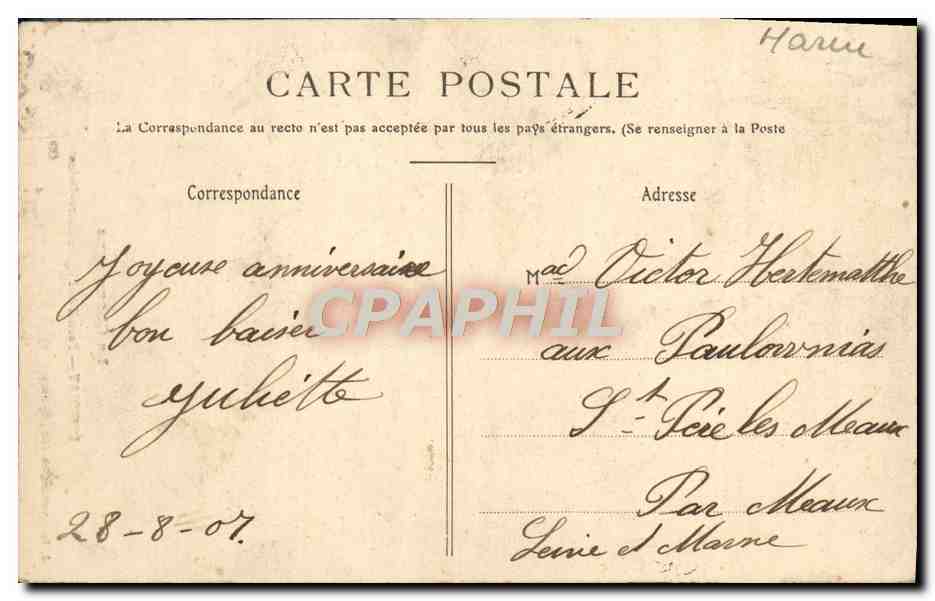 Marne
CARTE POSTALE
La Correspondance au recto n'est pas acceptée par tous les pays étrangers. (Se renseigner à la Poste
Correspondance
Adresse
Joyeuse anniversaire
bon baiser
Juliette
28-8-07.
Mad Victor Hertematthe
aux Paulownias
St Père les Meaux
Par Meaux
Seine et Marne
CPAPHIL